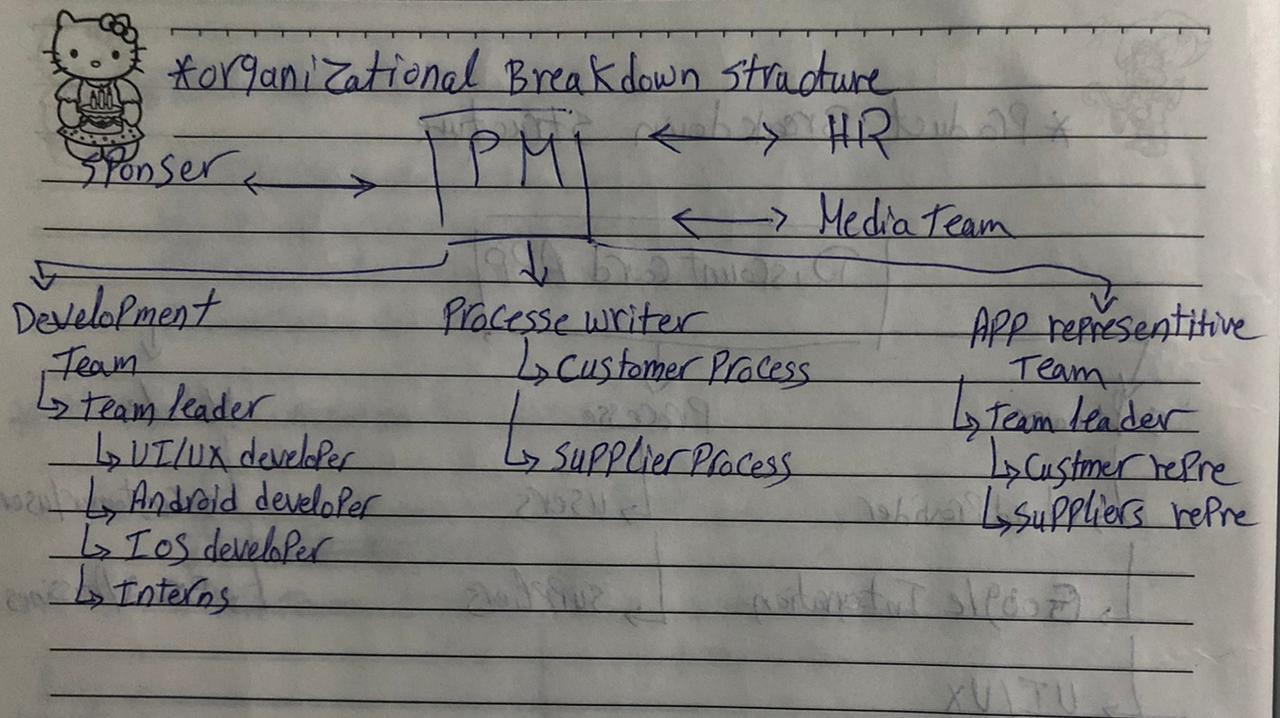 *organizational Breakdown structure
PM
HR
sponser
Media Team
Development
Team
Team leader
UI/UX developer
Android developer
Ios developer
Interns
Processe writer
Customer Process
supplier Process
APP representitive
Team
Team leader
Custmer repre
suppliers repre